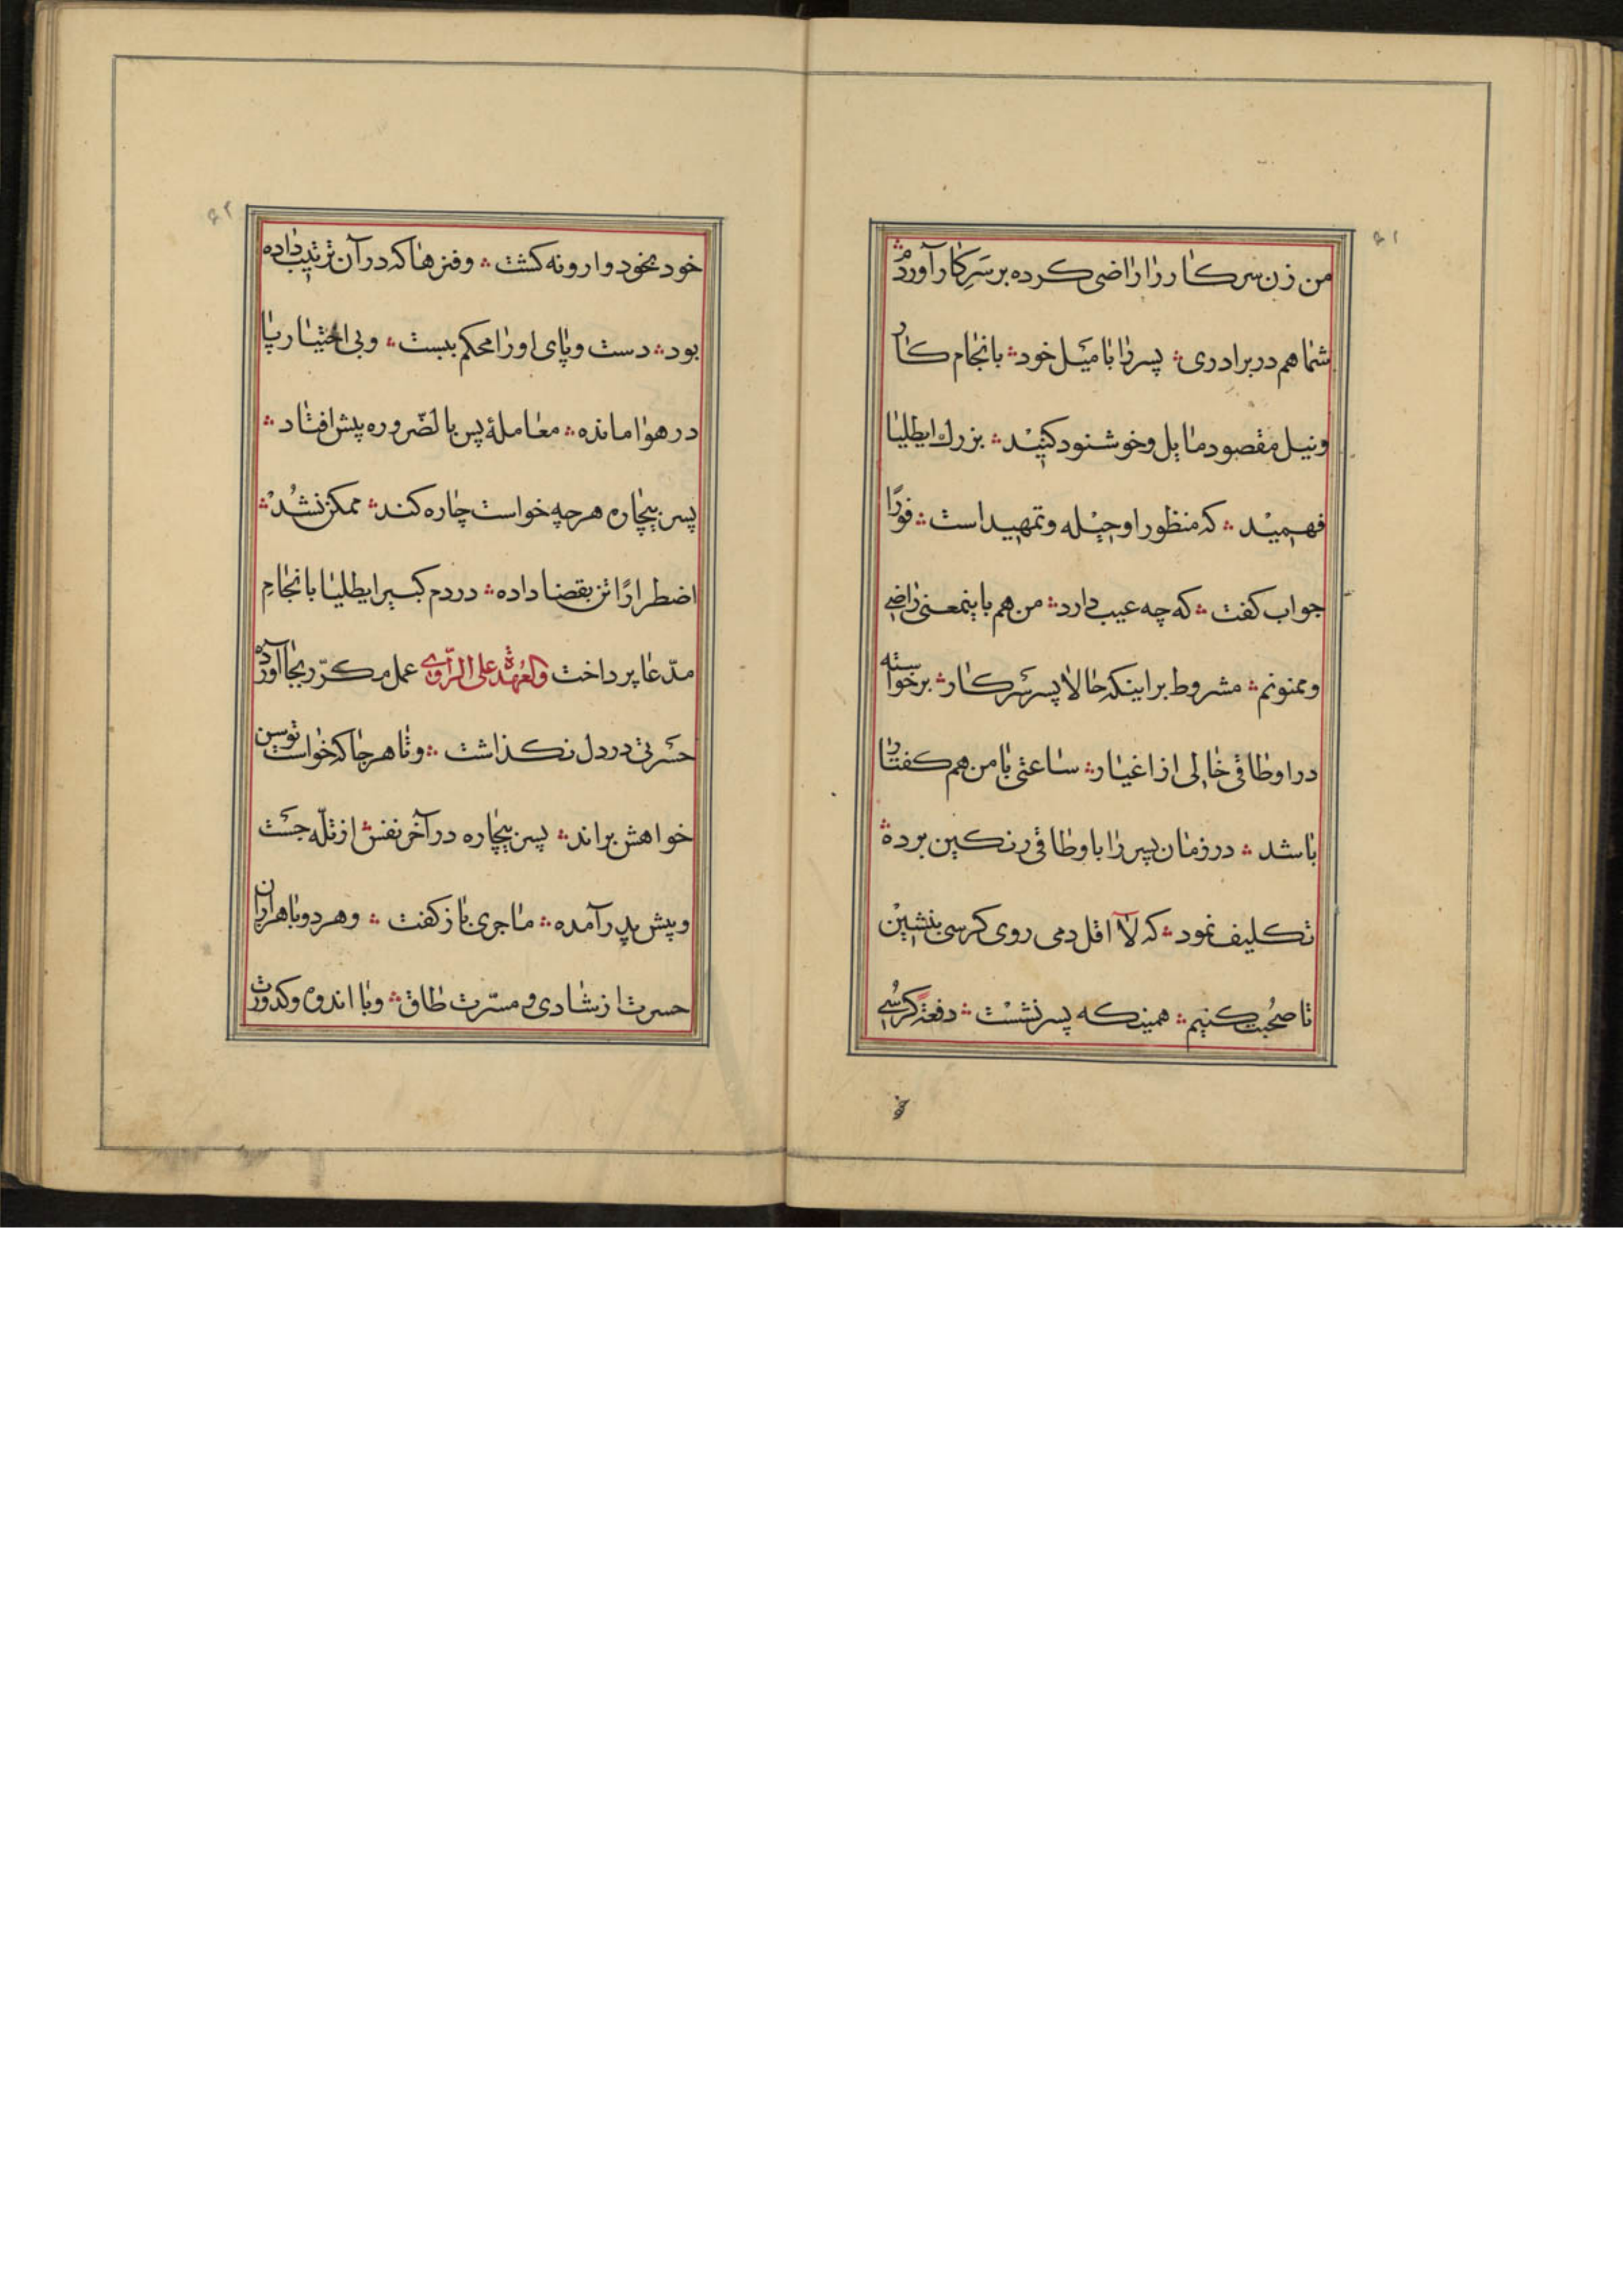 ۶۱
من زن سرکار را راضی کرده بر سَرِ کار آوردم
شما هم در برادری پسر را با میَل خود بانجام کار
ونیل مقصود مایل وخوشنود کنید بزرك ایطلیا
فهمید که منظور او حیله وتمهید است فورًا
جواب کفت که چه عیب دارد من هم باینمعنی راضی
وممنونم مشروط بر اینکه حالا پسر سَرکار برخواسته
در اوطاقی خالی از اغیار ساعتی با من هم کفتار
باشد در زمان پسر را باوطاقی رنکین برده
تکلیف نمود که لآ اقل دمی روی کرسی بنشین
تا صحُبت کنیم همینکه پسر نشست دفعةً کرسُی
خو
۶۲
خود بخود وارونه کشت وفنرها که در آن ترتیب داده
بود دست وپای اورا محکم ببست وبی اختیار پا
در هوا مانده معاملهٔ پس بالضّروره پیش افتاد
پسر بیچاره هرچه خواست چاره کند ممکن نشُدْ
اضطرارًا تن بقضا داده در دم کبیر ایطلیا بانجامِ
مدّعا پرداخت والعُهدة علی الرّاوی عمل مکرّر بجا آورده
حسَرتی در دل نکذاشت وتا هرجا که خواست توسن
خواهش براند پسر بیچاره در آخر نفس از تلّه جسَت
وپیش پدر آمده ماجری باز کفت وهردو با هزاران
حسرت از شادی و مسرّت طاق وبا اندوه وکدورت